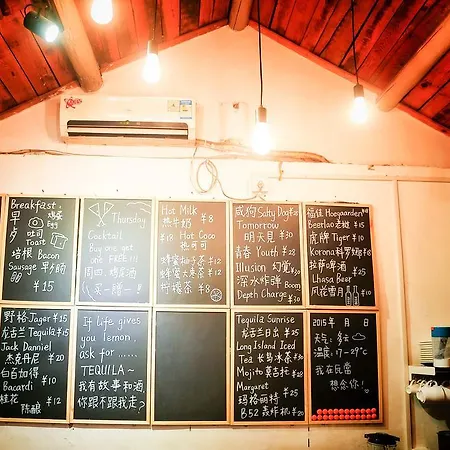 Breakfast
早 鸡蛋
Egg
餐 吐司
Toast
培根 Bacon
Sausage 早小肠
¥15
Thursday
Cocktail
Buy one get
one FREE!!!
周四,鸡尾酒
买一赠一!
Hot Milk
热牛奶 ¥8
¥18 Hot Coco
热可可
蜂蜜柚子茶 ¥12
蜂蜜大枣茶 ¥12
柠檬茶 ¥8
咸狗 Salty Dog ¥25
Tomorrow
明天見 ¥30
青春 Youth ¥28
Illusion 幻觉 ¥30
深水炸弹 Boom
Depth Charge ¥30
福佳 Hoegaarden ¥30
Beerlao 老挝 ¥15
虎牌 Tiger ¥10
Korona 科罗娜 ¥18
拉萨啤酒 ¥15
Lhasa Beer
风花雪月 ¥10
野格 Jager ¥15
龙舌兰 Tequila ¥15
Jack Danniel
杰克丹尼 ¥20
白百加得
Bacardi ¥10
桂花 ¥12
陈酿
If life gives
you lemon,
ask for......
TEQUILA~
我有故事和酒
你跟不跟我走?
Tequila Sunrise
龙舌兰日出 ¥25
Long Island Iced
Tea 长岛冰茶 ¥30
Mojito 莫吉托 ¥30
Margaret
玛格丽特 ¥25
B52 轰炸机 ¥20
2015年 月 日
天气: 多云
温度: 17-29℃
我在尻常
想念你!